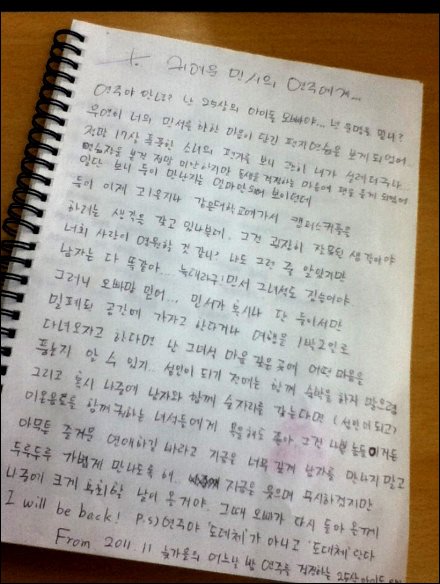 귀여운 민서의 연주에게...
연주야 안녕? 난 25살의 아이돌 오빠야... 넌 운명을 믿니?
우연히 너의 민서를 향한 마음이 담긴 편지연습을 보게 되었어
정말 17살 풋풋한 소녀의 편지를 보니 괜히 내가 설레더구나..
연습장을 펼친 정말 미안하지만 동생을 걱정하는 마음에 펜을 들게 되었어
일단 보니 둘이 만나지는 얼마안되어 보이던데
둘이 이제 고1유지나 같은대학교에가서 캠퍼스커플을
하려는 생각을 갖고 있나본데. 그건 굉장히 잘못된 생각이야
너희 사랑이 영원할 것 같니? 나도 그런 줄 알았지만
남자는 다 똑같아... 늑대라구! 민서 그녀석도 짐승이야
그러니 오빠만 믿어... 민서가 혹시나 단 둘이서만
밀폐된 공간에 가자고 한다거나 여행을 1박2일로
다녀오자고 한다면 난 그녀석 마음 깊은곳에 어떤 마음을
품는지 알 수 있지.. 성인이 되기 전에는 함께 숙박을 하지 말으렴
그리고 혹시 나중에 남자와 함께 술자리를 갖는다면 (성인이 되고)
이온음료를 함께 권하는 녀석들에게 욕을해도 좋아 그건 나쁜 놈들이거든
아무튼 즐거운 연애하길 바라고 지금은 너무 깊게 남자를 만나지 말고
두루두루 가볍게 만나도록 해. 지금은 웃으며 무시하겠지만
나중에 크게 후회할 날이 올거야. 그때 오빠가 다시 돌아올게
I will be back! P.S) 연주야 '도데체'가 아니고 '도대체'란다
From 2011. 11 늦가을의 어느날 밤 연주를 걱정하는 25살 아이돌 오빠